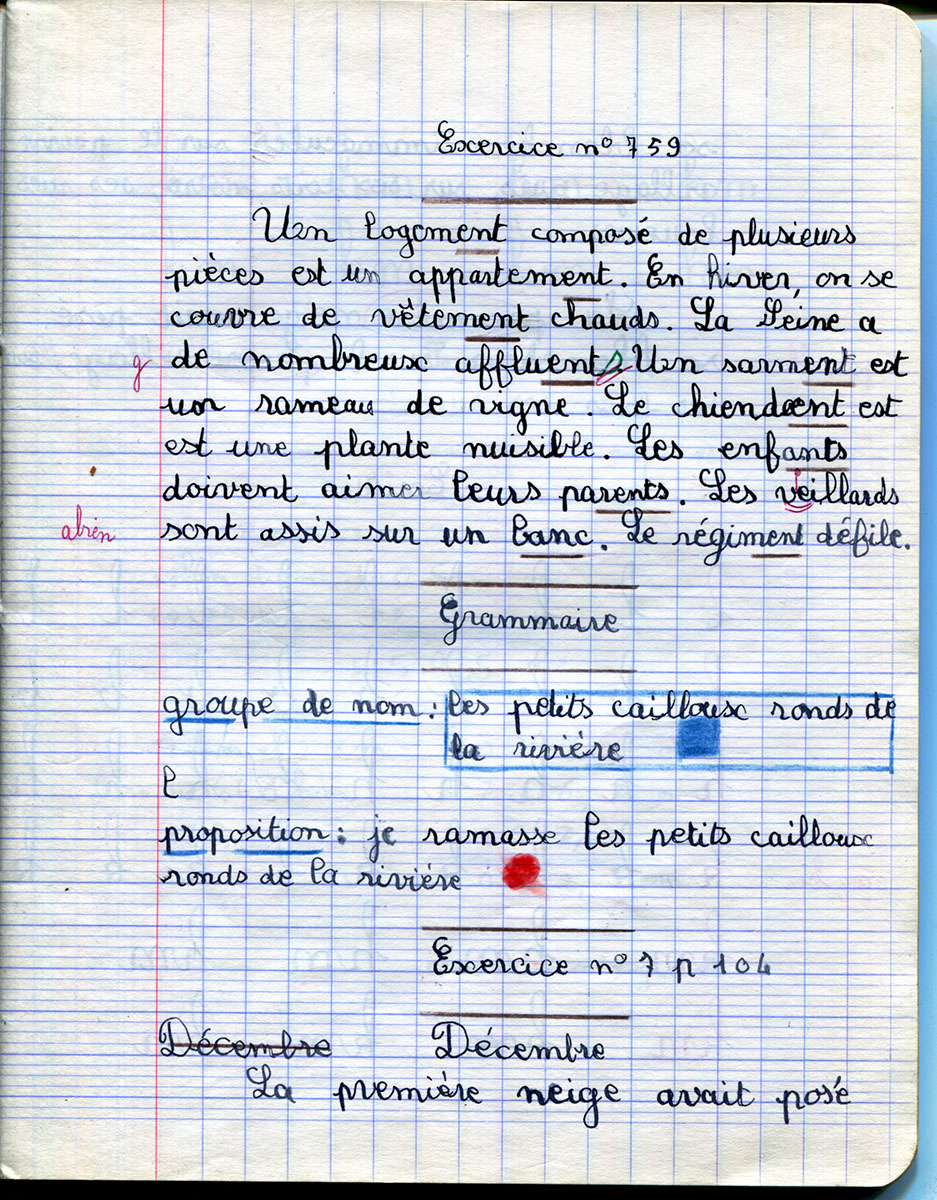 Excercice n° 759
Un logement composé de plusieurs
pièces est un appartement. En hiver, on se
couvre de vêtement chauds. La Seine a
g de nombreux affluents Un sarment est
un rameau de vigne. Le chiendent est
est une plante nuisible. Les enfants
doivent aimer leurs parents. Les veillards
sont assis sur un banc. Le régiment défile.
Grammaire
groupe de nom : les petits cailloux ronds de
la rivière
l
proposition : je ramasse les petits cailloux
ronds de la rivière
Excercice n° 7 p 104
Décembre Décembre
La première neige avait posé